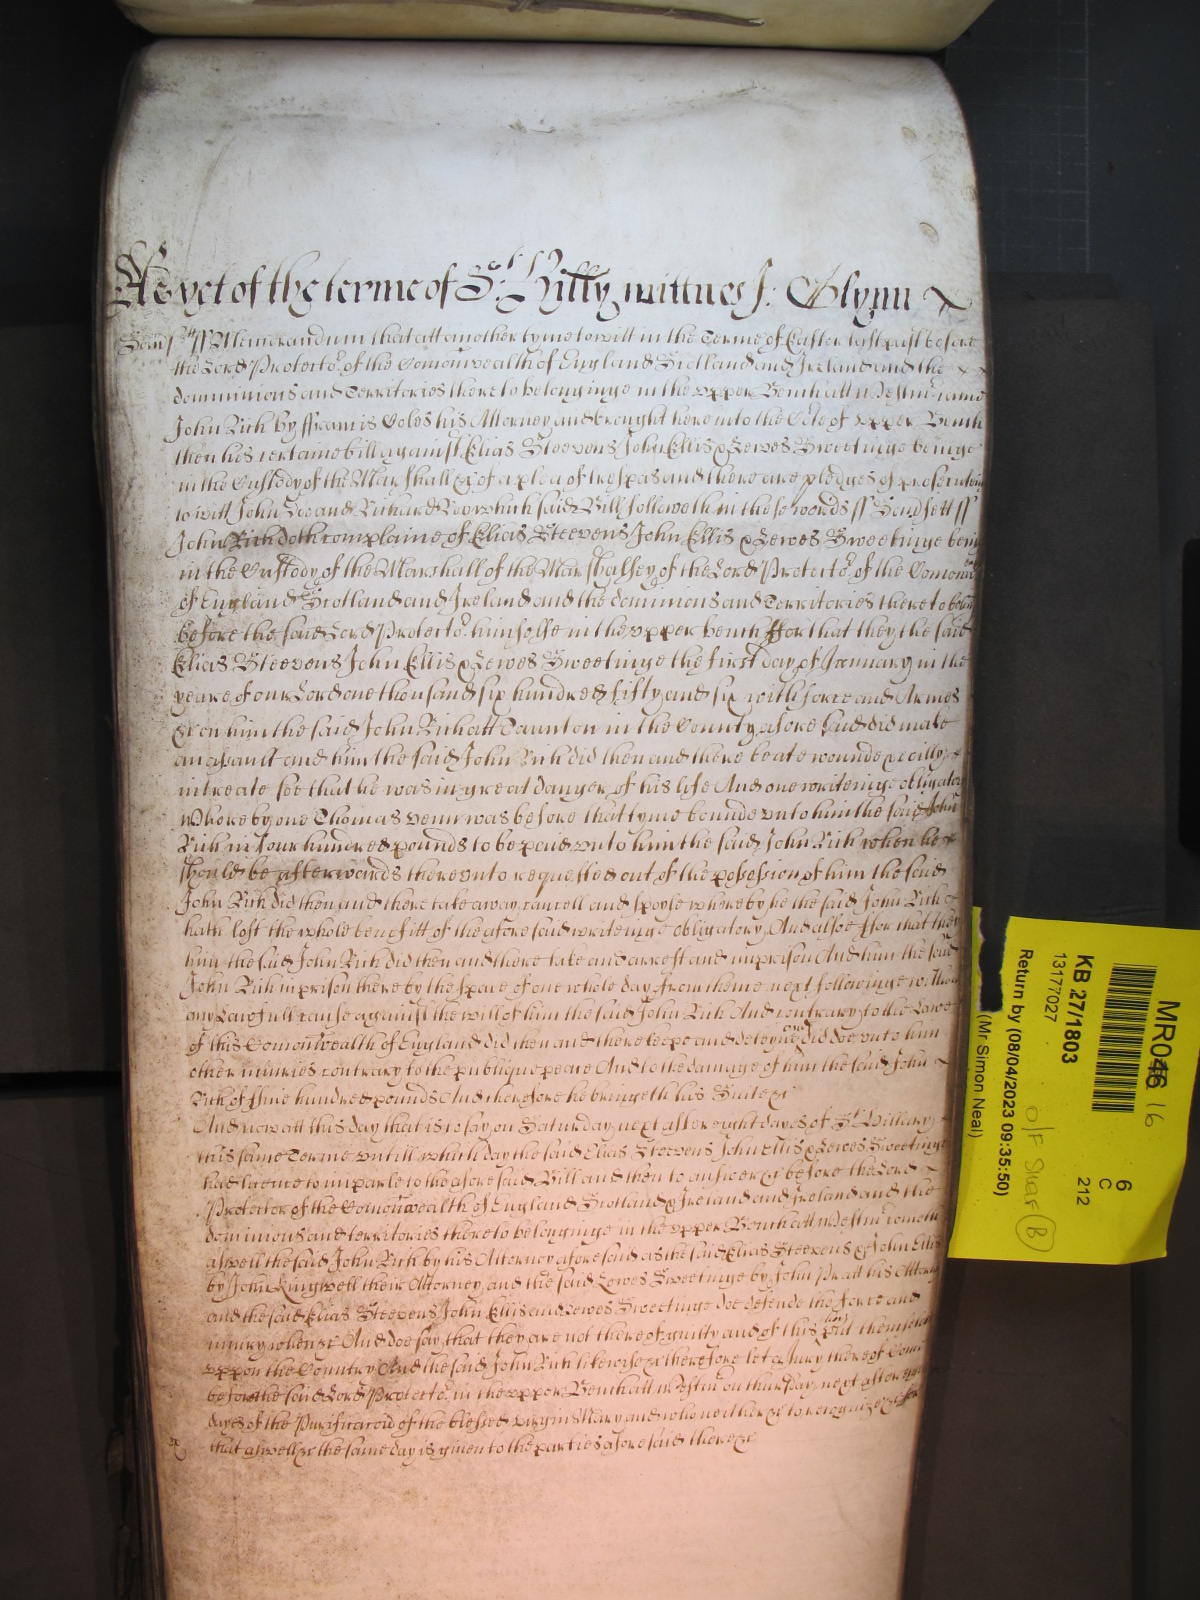 As yet of the terme of St. Hilly wittnes J: Glynn
Som's ss Memorandum that att another tyme to witt in the Terme of Easter last past before
the Lord Protector of the Comonwealth of England Scotland and Ireland and the
dominions and Territories thereto belonginge in the upper Bench att Westmr came
John Rich by ffrancis Coles his Attorney and brought here into the Cort of upper Bench
then his certaine bill against Elias Steevens John Ellis & Lewes Sweetinge beinge
in the Custody of the Marshall &c of a plea of trespas and there are pledges of prosecution
to witt John Doe and Richard Roe which said Bill followeth in these words ss Somsett ss
John Rich doth complaine of Elias Steevens John Ellis & Lewes Sweetinge being
in the Custody of the Marshall of the Marshalsey of the Lord Protector of the Comon
of England Scotland and Ireland and the dominions and Territories thereto
before the said Lord Protector himselfe in the upper bench ffor that they the said
Elias Steevens John Ellis & Lewes Sweetinge the first day of January in the
yeare of our Lord one thousand six hundred fifty and six with force and Armes
&c on him the said John Rich att Taunton in the County aforesaid did make
an assault and him the said John Rich did then and there beate wounde & evilly
intreate soe that he was in great danger of his life And one writeinge obligatory
Whereby one Thomas Venn was before that tyme bounde unto him the said John
Rich in four hundred pounds to be paid unto him the said John Rich when he
should be afterwards thereunto requested out of the possession of him the said
John Rich did then and there take away cancell and spoyle whereby he the said John Rich
hath lost the whole benefitt of the aforesaid writeinge obligatory And alsoe ffor that they
him the said John Rich did then and there take and arrest and imprison And him the said
John Rich in prison there by the space of one whole day from thence next followinge without
any Lawfull cause against the will of him the said John Rich And contrary to the Lawes
of this Comonwealth of England did then and there keepe and deteyne and did doe unto him
other iniuries contrary to the publique peace And to the damage of him the said John
Rich of ffive hundred pounds And therefore he bringeth his Suite &c
And now att this day that is to say on Saturday next after eight dayes of St Hillary
this same Terme untill which day the said Elias Steevens John Ellis & Lewes Sweetinge
had licence to imparle to the aforesaid Bill and then to answer &c before the Lord
Protector of the Comonwealth of England Scotland & Ireland and Ireland and the
dominions and territories thereto belonginge in the upper Bench att Westmr cometh
aswell the said John Rich by his Attorney aforesaid as the said Elias Steevens & John Ellis
by John Ringwell their Attorney and the said Lewes Sweetinge by John Pratt his Attorn
and the said Elias Steevens John Ellis and Lewes Sweetinge doe defende the force and
iniury when &c And doe say that they are not thereof guilty and of this they putt themselves
uppon the Country And the said John Rich likewise &c therefore let a Jury thereof come
before the said Lord Protector in the upper Bench att Westmr on thursday next after
dayes of the Purificacon of the blessed virgin Mary and who neither &c to recognize &c
that aswell &c the same day is given to the parties aforesaid there &c
MR046 16
KB 27/1803
13177027
6
C
212
O/F Star B
Return by (08/04/2023 09:35:50)
(Mr Simon Neal)